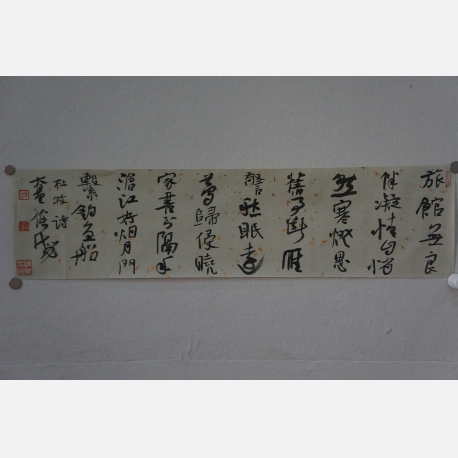 旅館無良
伴凝情自悄
然寒燈思
舊事斷雁
警愁眠遠
夢歸侵曉
家書到隔年
滄江好烟月門
繫釣魚船
杜牧詩